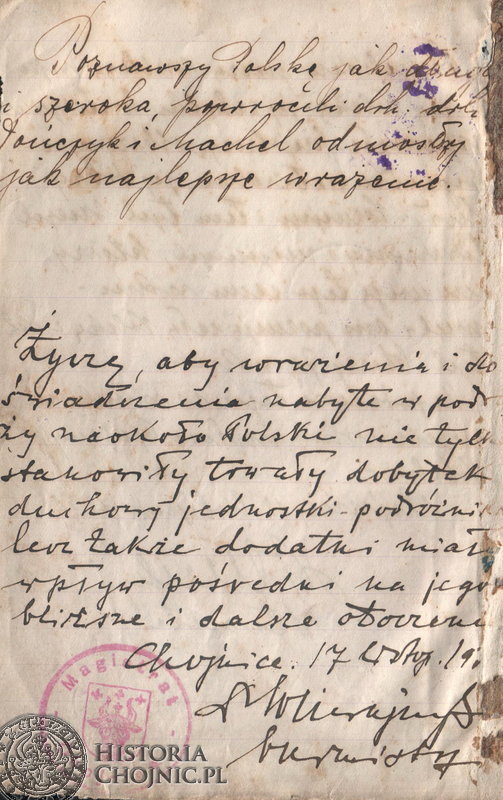 Poznawszy Polskę jak długa
i szeroka, powrócili dnh. dnh.
Pończyk i Machel odniosłszy
jak najlepsze wrażenie.
Życzę, aby wrażenia i do
świadczenia nabyte w podr
ży naokoło Polski nie tylk
stanowiły trwały dobytek
duchowy jednostki-podróżnik
lecz także dodatni miały
wpływ pośredni na jego
bliższe i dalsze otoczenie
Chojnice. 17 Listop. 19
burmistrz
Magistrat
HISTORIA
CHOJNIC.PL